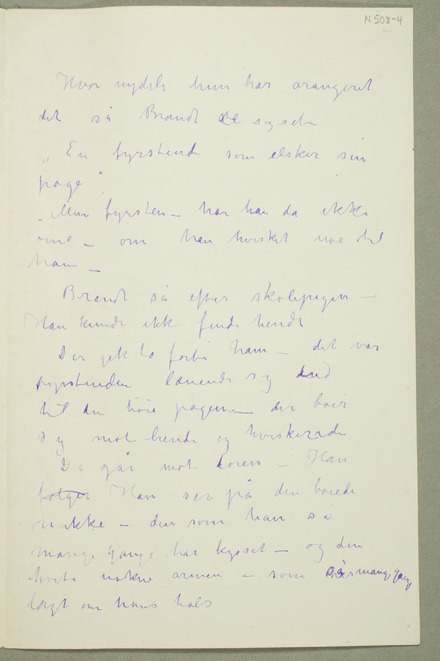 N 503-4
Hvor nydeli hun har arangeret
det så Brandt syset
„En fyrstinde som elsker sin
page"
„Men fyrsten – har han da ikke
– om han hvisket noe til
ham –
Brandt så efter skolepigen –
Han kunde ikke finde hende
Der gik to forbi ham – det var
fyrstinden lænende sig ind
til den höie pagen – der böier
sig mot hende og hviskende
De går mot dören – Han
fölger Han ser på den böiede
nikke – den som han så
mange gange har kysset – og den
hvite nakne armen – som så mang gang
lagt om hans hals